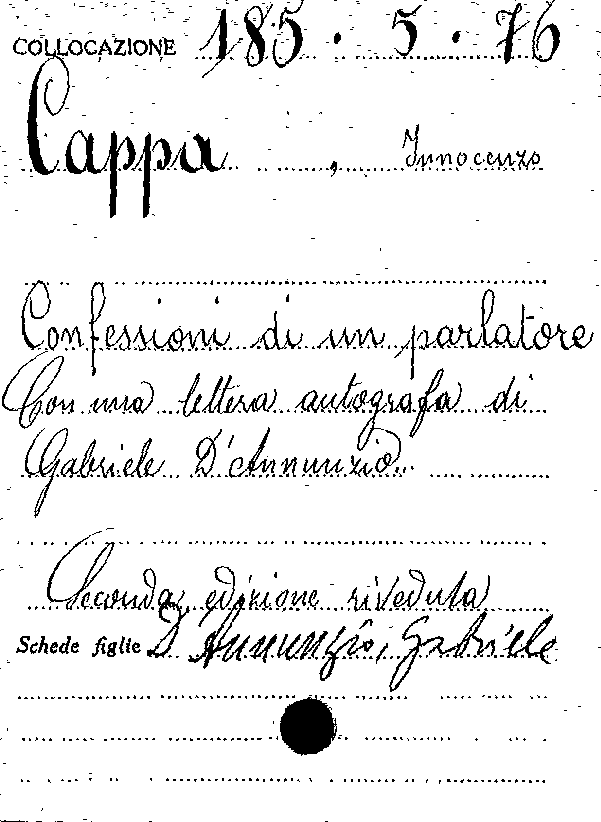 COLLOCAZIONE 185.5.76
Cappa , Innocenzo
Confessioni di un parlatore
Con una lettera autografa di
Gabriele D'Annunzio.
Seconda edizione riveduta
Schede figlie D'Annunzio, Gabriele